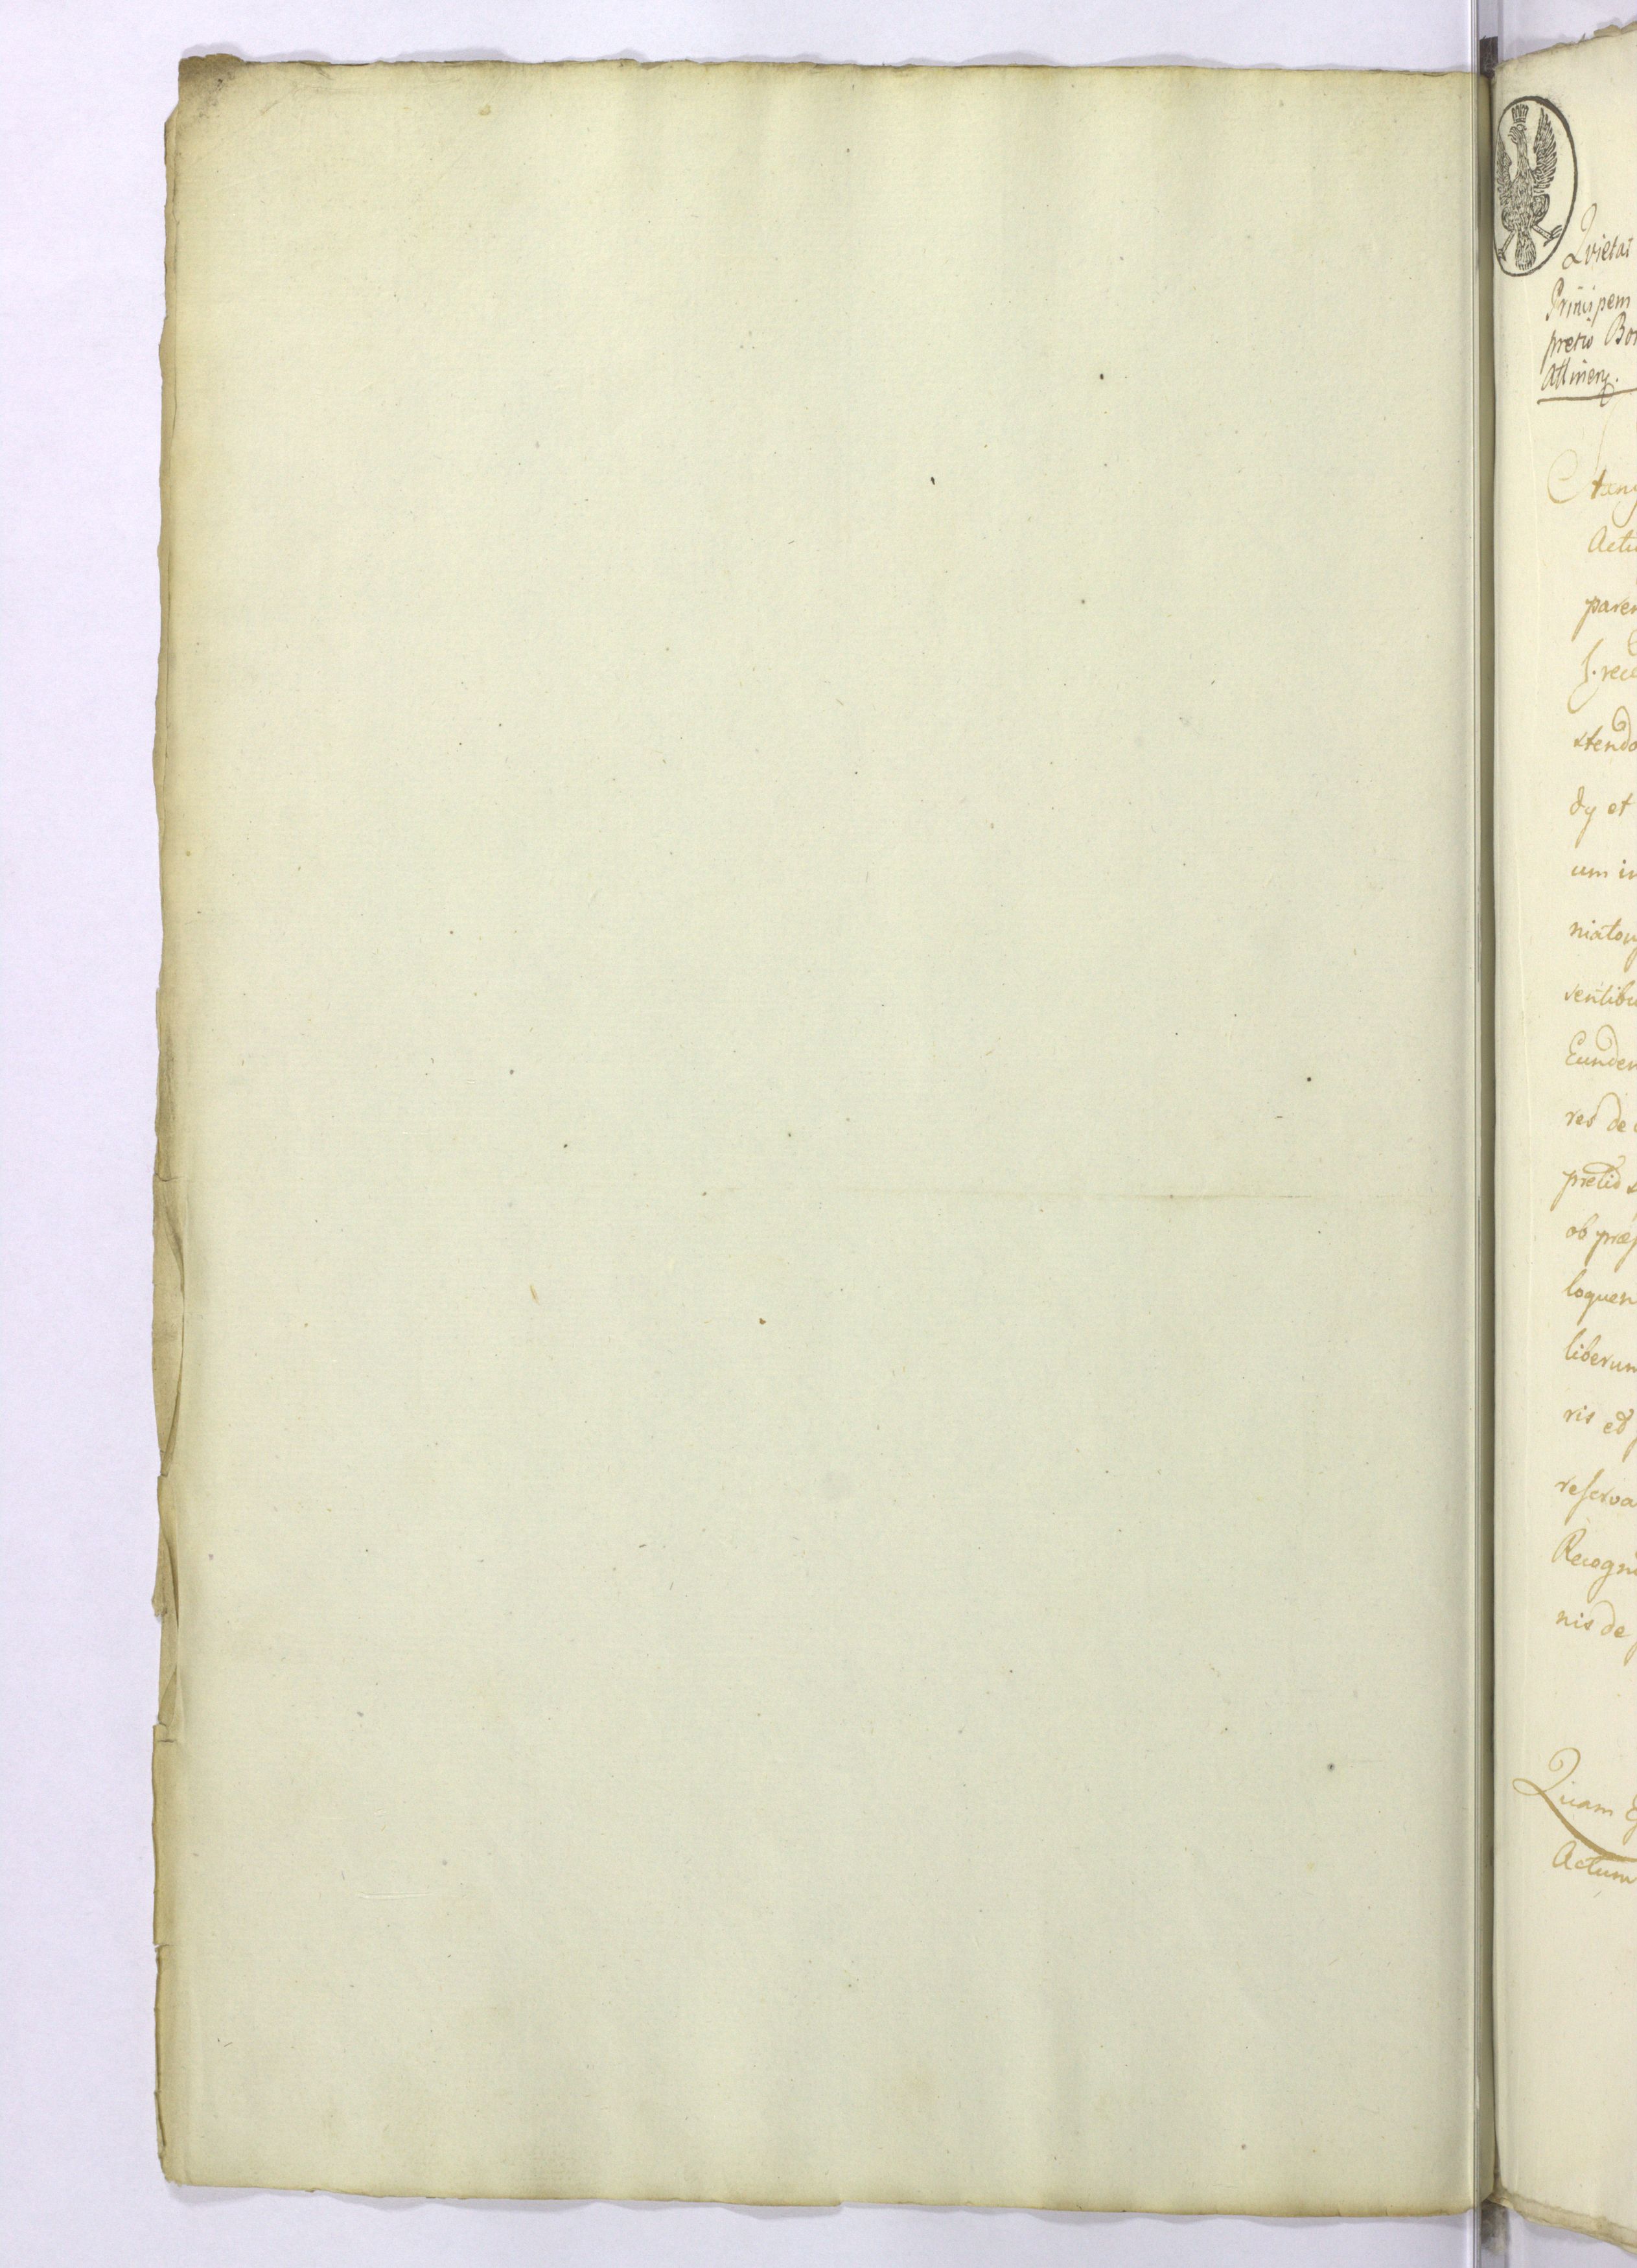 Qvietat
Principem
pretio Bon
Attinen.
Actu
paren
stendo
dy et
um in
niatory
sentibu
Eundem
res de
pretio
ob præf
loquen
liberum
ris et
reserva
Recogni
nis de
Quam
Actum